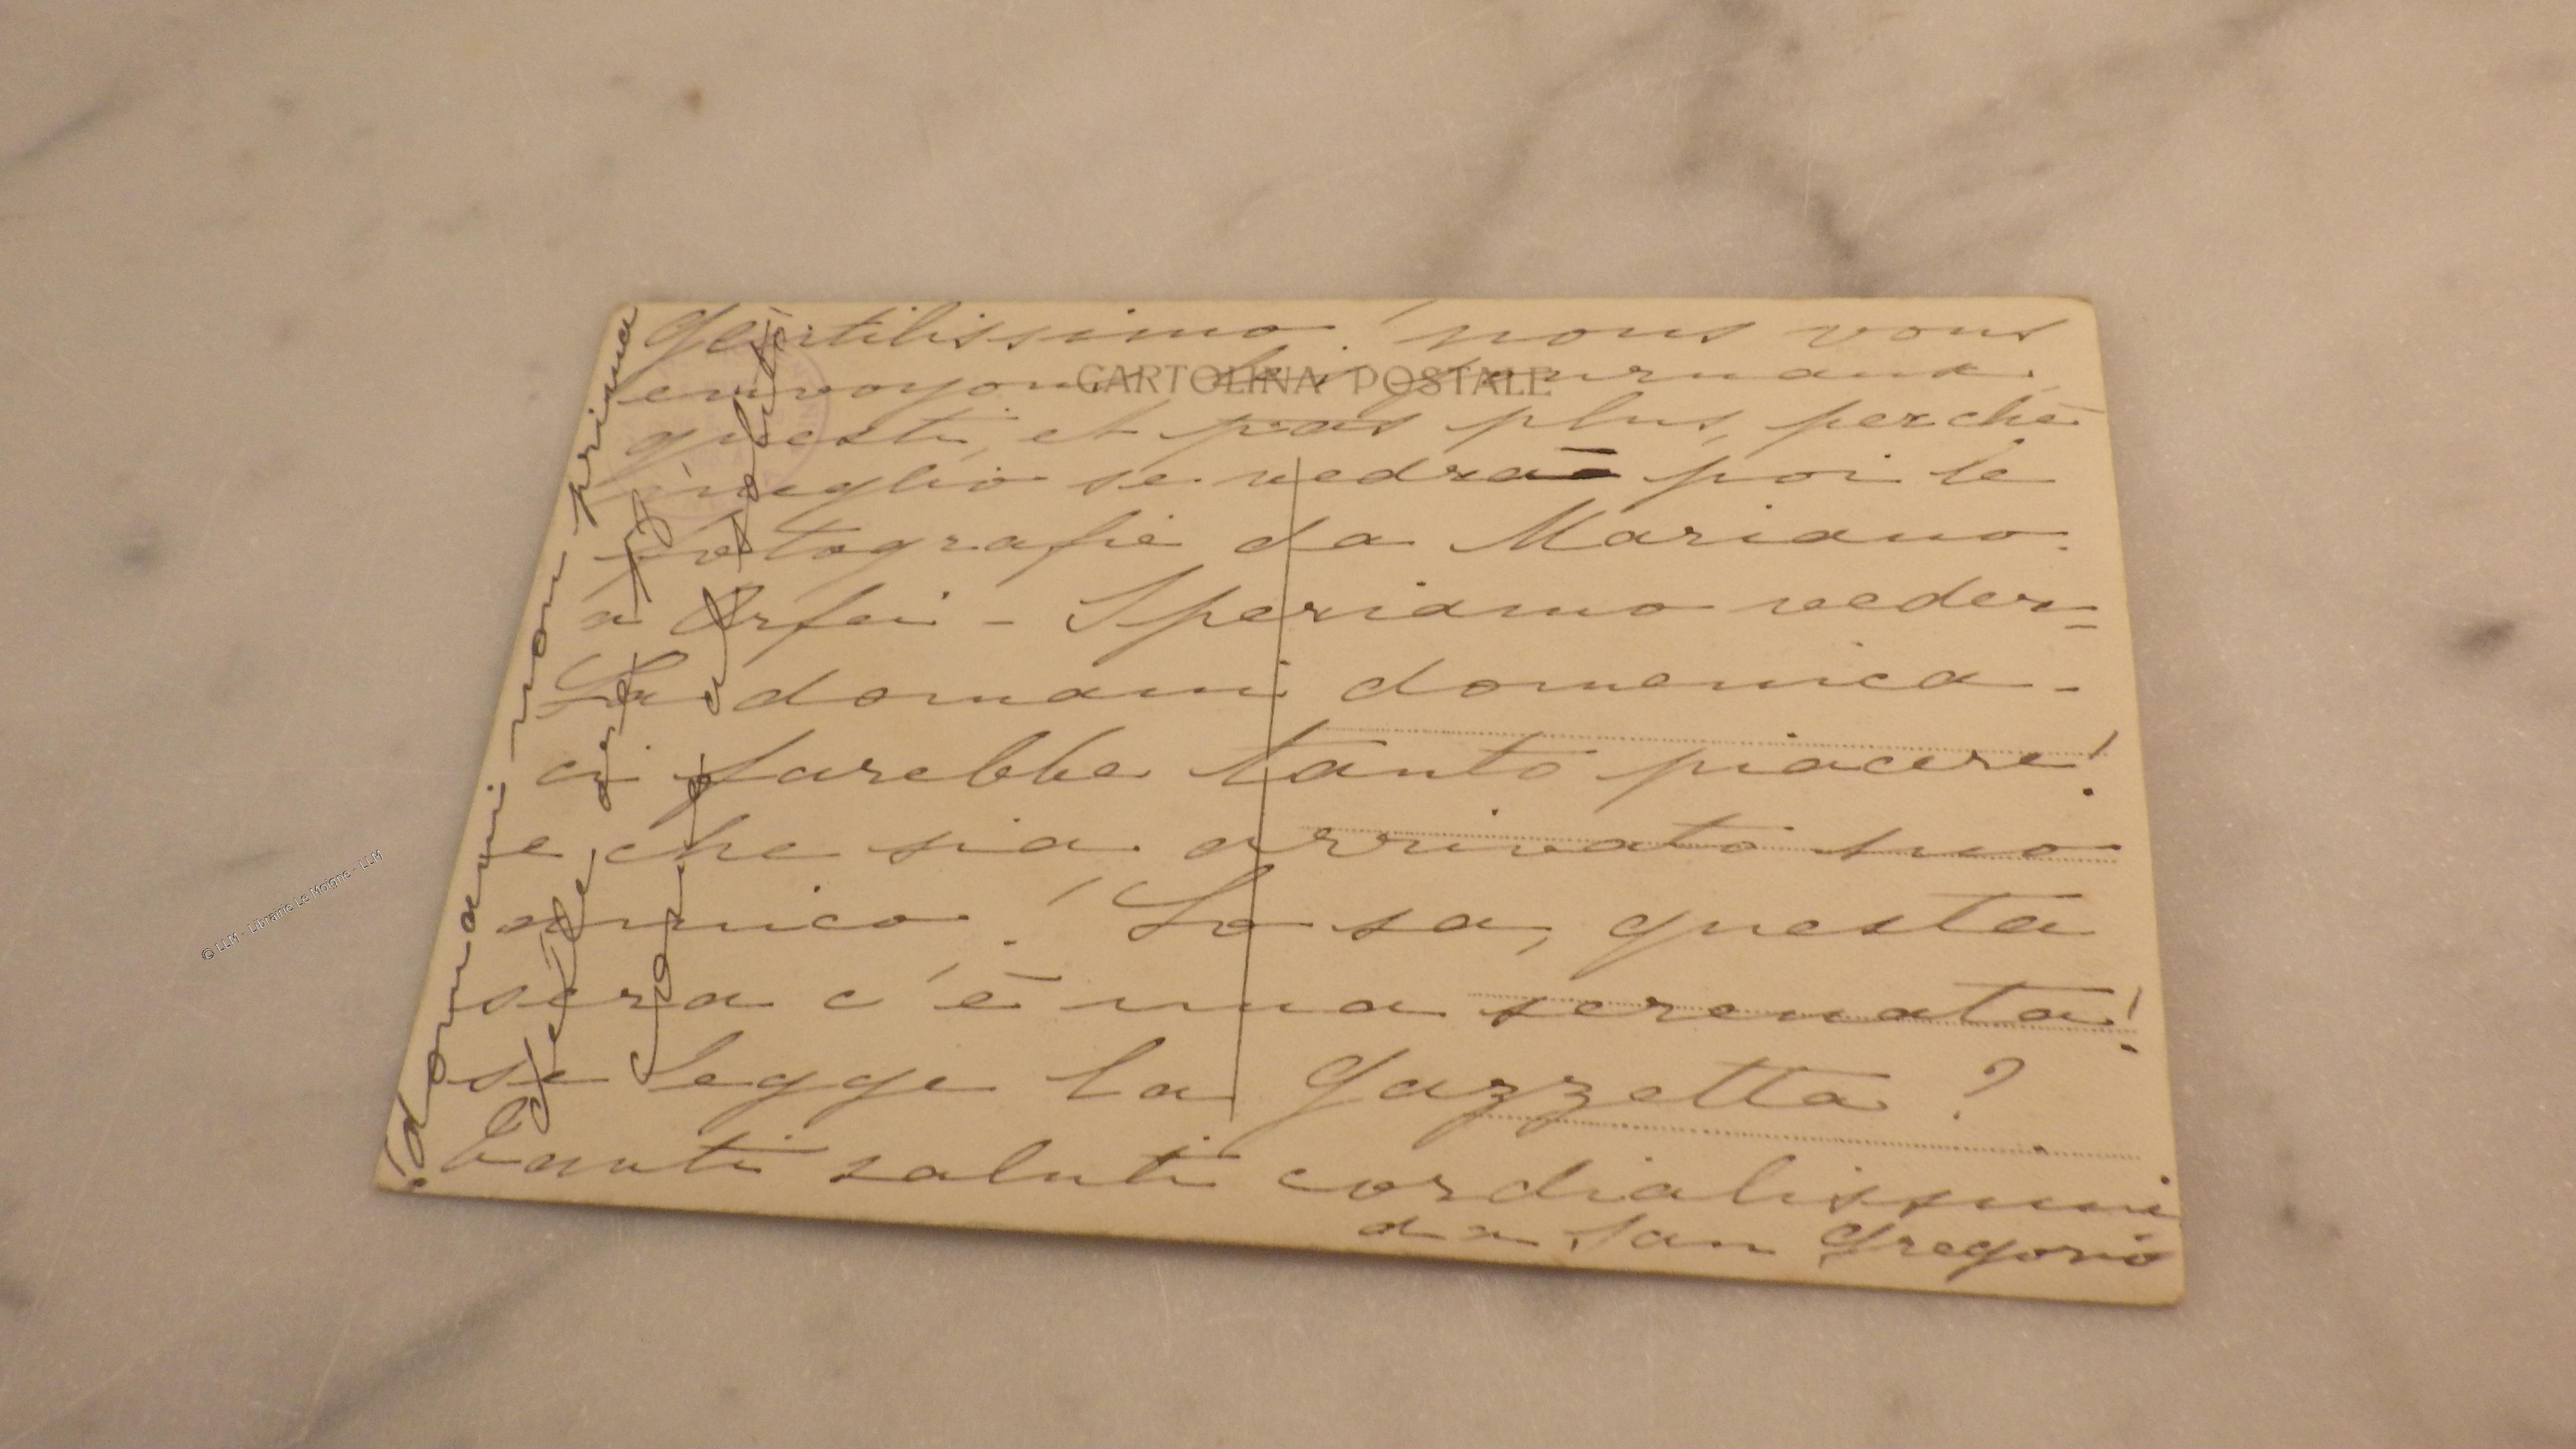 Gentilissimo! nous vous
CARTOLINA POSTALE
envoyons
questi, et pas plus, perchè
meglio se vedrà poi le
fotografie da Mariano
a Orfei - Speriamo veder=
La domani domenica -
ci farebbe tanto piacere!
e che sia arrivato suo
amico! Lo sa, questa
sera c'è una serenata!
se legge la Gazzetta?
Tanti saluti cordialissimi
da San Gregorio
domani non prima
© LLM - Librairie Le Moigne - LLM